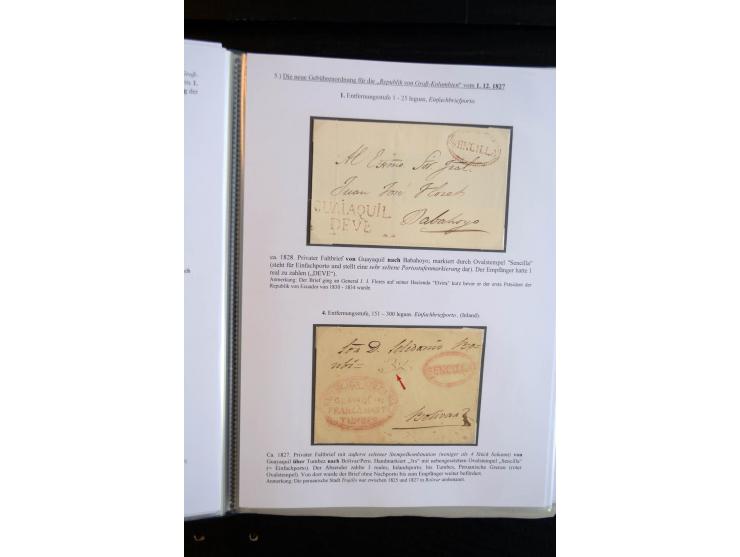 5.) Die neue Gebührenordnung für die „Republik von Groß-Kolumbien“ vom 1. 12. 1827
1. Entfernungsstufe 1 - 25 leguas, Einfachbriefporto
SENCILLA
Al Exmo Sor Gral.
Juan José Flores
GUAIAQUIL
DEVE
Babahoyo
ca. 1828. Privater Faltbrief von Guayaquil nach Babahoyo; markiert durch Ovalstempel "Sencilla"
(steht für Einfachporto und stellt eine sehr seltene Portostufenmarkierung dar). Der Empfänger hatte 1
real zu zahlen („DEVE“).
Anmerkung: Der Brief ging an General J. J. Flores auf seiner Hacienda "Elvira" kurz bevor er der erste Präsident der
Republik von Ecuador von 1830 - 1834 wurde.
4. Entfernungsstufe, 151 – 300 leguas. Einfachbriefporto. (Inland)
SENCILLA
GUAYAQUIL
FRANCA HASTA
TUMBES
Bolivar
Ca. 1827. Privater Faltbrief mit äußerst seltener Stempelkombination (weniger als 4 Stück bekannt) von
Guayaquil über Tumbez nach Bolivar/Peru. Handmarkiert „3rs“ mit nebengesetzten Ovalstempel „Sencilla“
(= Einfachporto). Der Absender zahlte 3 reales, Inlandsporto, bis Tumbes, Peruanische Grenze (roter
Ovalstempel). Von dort wurde der Brief ohne Nachporto bis zum Empfänger weiter befördert.
Anmerkung: Die peruanische Stadt Trujillo war zwischen 1825 und 1827 in Bolivar umbenannt.